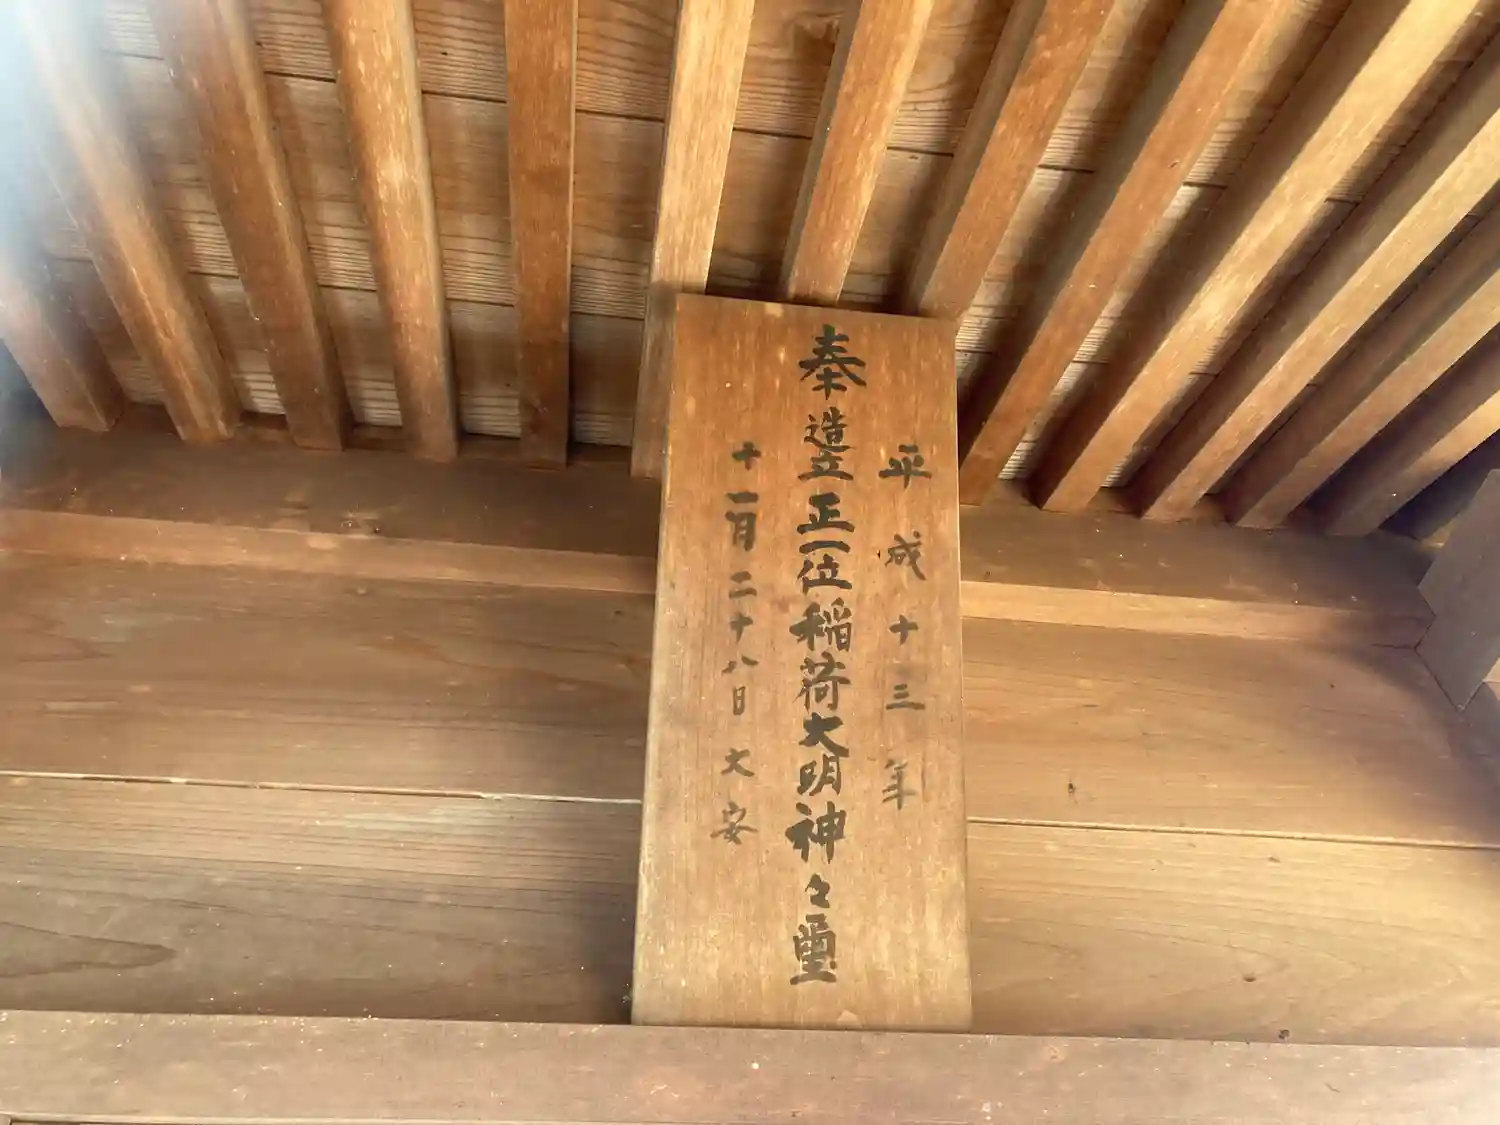 奉造立正一位稲荷大明神々璽
平成十三年
十一月二十八日大安